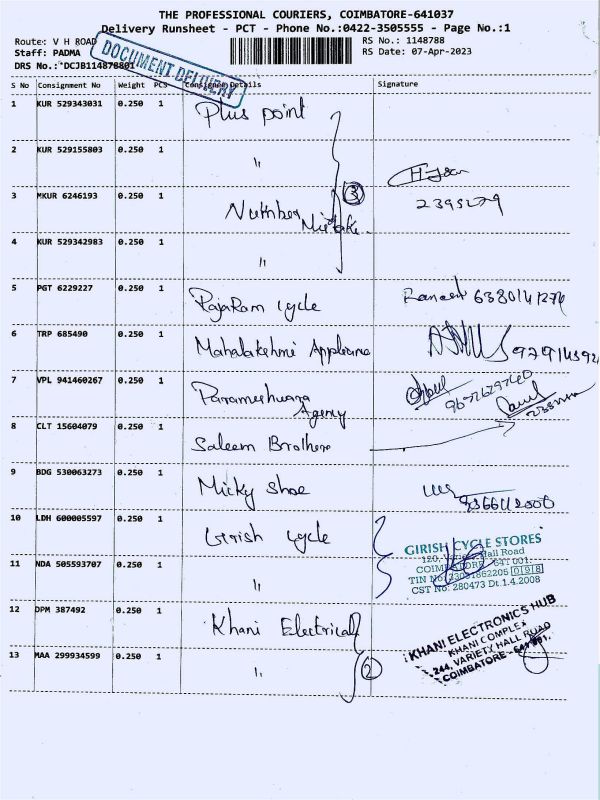 THE PROFESSIONAL COURIERS, COIMBATORE-641037
Delivery Runsheet - PCT - Phone No.:0422-3505555 - Page No.:1
Route: V H ROAD
RS No.: 1148788
Staff: PADMA
RS Date: 07-Apr-2023
DRS No.:*DCJB114878801*
DOCUMENT DELIVERY
S No Consignment No Weight PCS Consignee Details Signature
1 KUR 529343031 0.250 1 Plus point
2 KUR 529155803 0.250 1 "
3 MKUR 6246193 0.250 1 Number Mistake 3
2395279
4 KUR 529342983 0.250 1 "
5 PGT 6229227 0.250 1 RajaRam Cycle
6 TRP 685490 0.250 1 Mahalakshmi Appliance
7 VPL 941460267 0.250 1 Parameshwara Agency
8 CLT 15604079 0.250 1 Saleem Brothers
9 BDG 530063273 0.250 1 Micky Shoe
10 LDH 600005597 0.250 1 Girish Cycle
GIRISH CYCLE STORES
120, Variety Hall Road
COIMBATORE - 641 001.
CST No: 280473 Dt.1.4.2008
11 NDA 505593707 0.250 1 "
12 DPM 387492 0.250 1 Khani Electricals
KHANI ELECTRONICS HUB
KHANI COMPLEX
244, VARIETY HALL ROAD
COIMBATORE - 641 001.
13 MAA 299934599 0.250 1 " 2